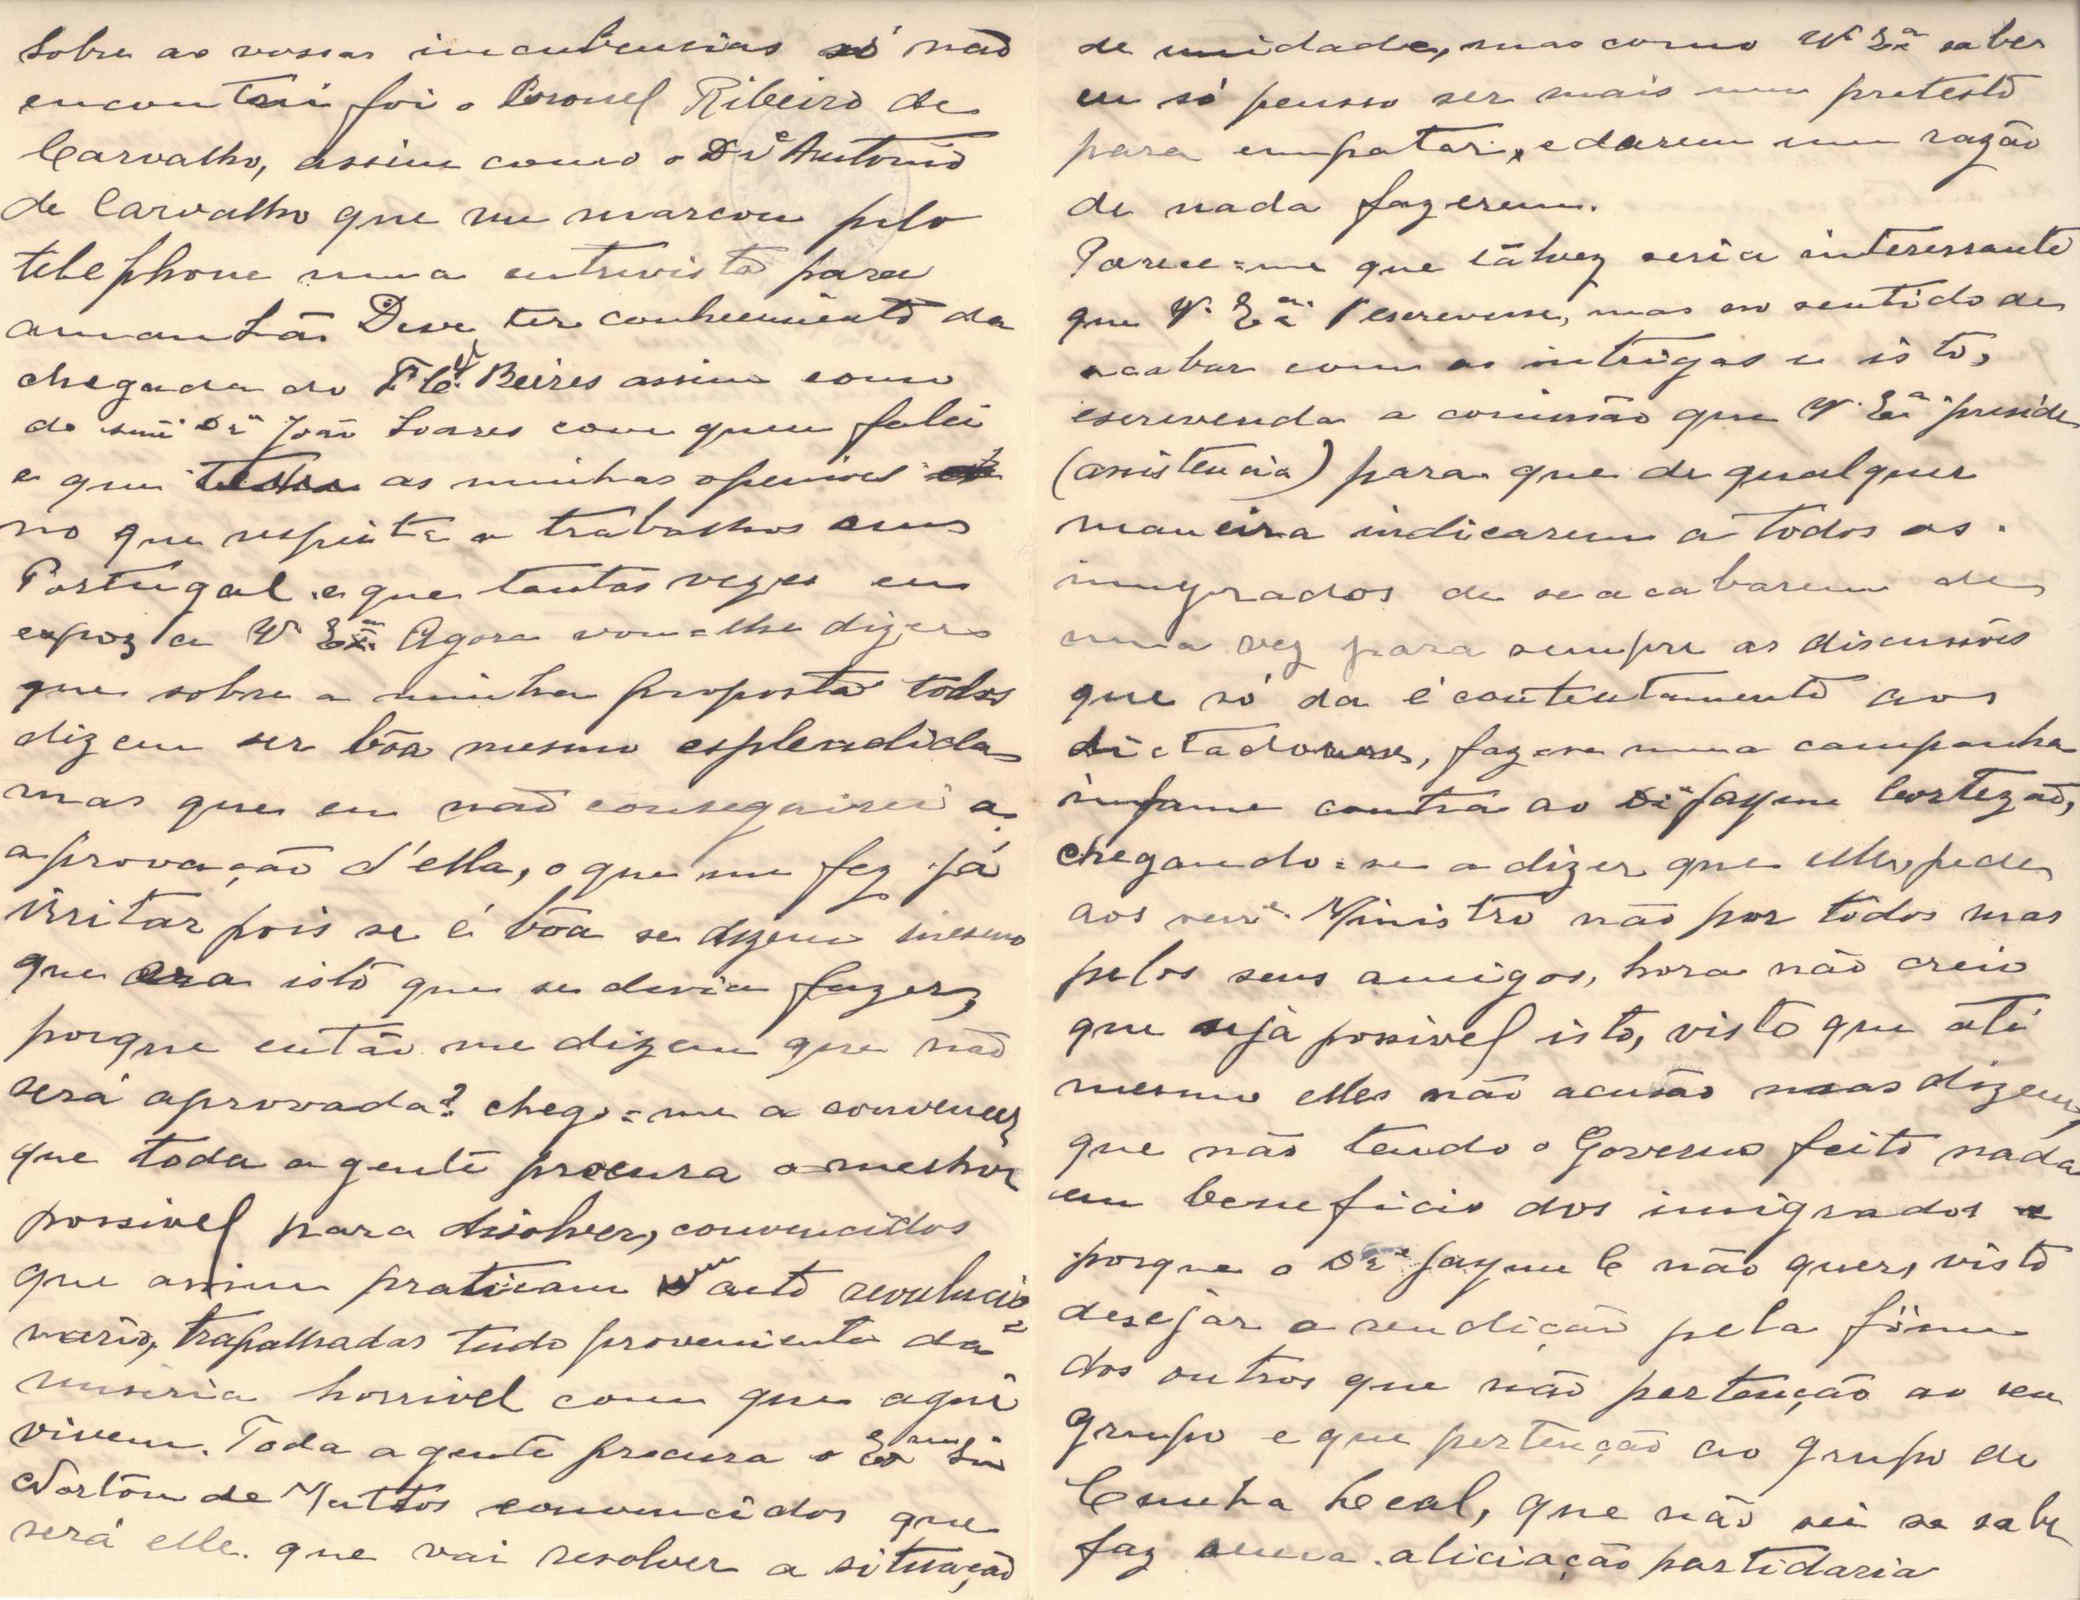 sobre as vossas incubencias só não
encontrei foi o Coronel Ribeiro de
Carvalho, assim como o Drº Antonio
de Carvalho que me marcou pelo
telephone uma entrevista para
amanhã. Deve ter conhecimento da
chegada do Beires assim como
do Dr João Soares com quem falei
e que as minhas openiões
no que respeita a trabalhos em
Portugal e que tantas vezes eu
expoz a Vª Exª. Agora vou-lhe dizer
que sobre a minha proposta todos
dizem ser bôa mesmo esplendida
mas que eu não conseguirei a
aprovação d'ella, o que me fez já
irritar pois se é bôa se dizem mesmo
que era isto que se devia fazer,
porque então me dizem que não
será aprovada? chego=me a convencer
que toda a gente procura o melhor
possivel para disolver, convencidos
que assim praticam um acto revolucio=
nario, trapalhadas tudo proveniente da
miseria horrivel com que aqui
vivem. Toda a gente procura o Exmo Snr
Norton de Mattos convencidos que
será elle que vai resolver a situação
de unidade, mas como Vª Exª saber
eu só pensso ser mais um pretesto
para empatar, e darem um razão
de nada fazerem.
Parece=me que talvez seria interessante
que Vª Exª escrevesse, mas no sentido de
acabar com as intrigas e isto,
escrevenda a comissão que Vª Exª preside
(assistencia) para que de qualquer
maneira indicarem a todos os
imygrados de se acabarem de
uma vez para sempre as discussões
que só da é contentamento aos
dictadores, fazem uma campanha
infame contra ao Dr Jayme Cortezão,
chegando=se a dizer que elle pede
aos Ministro não por todos mas
pelos seus amigos, hora não creio
que seja possivel isto, visto que até
mesmo elles não acusão mas dizem,
que não tendo o Governo feito nada
em beneficio dos imigrados e
porque o Dr Jayme C não quer, visto
desejar a rendição pela fôme
dos outros que não pertenção ao seu
grupo e que pertenção ao grupo do
Cunha Leal, que não sei se sabe
faz uma aliciação partidaria